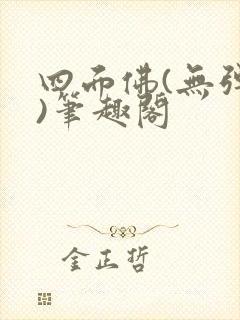 四而佛(無弹
)筆趣閣
金正哲